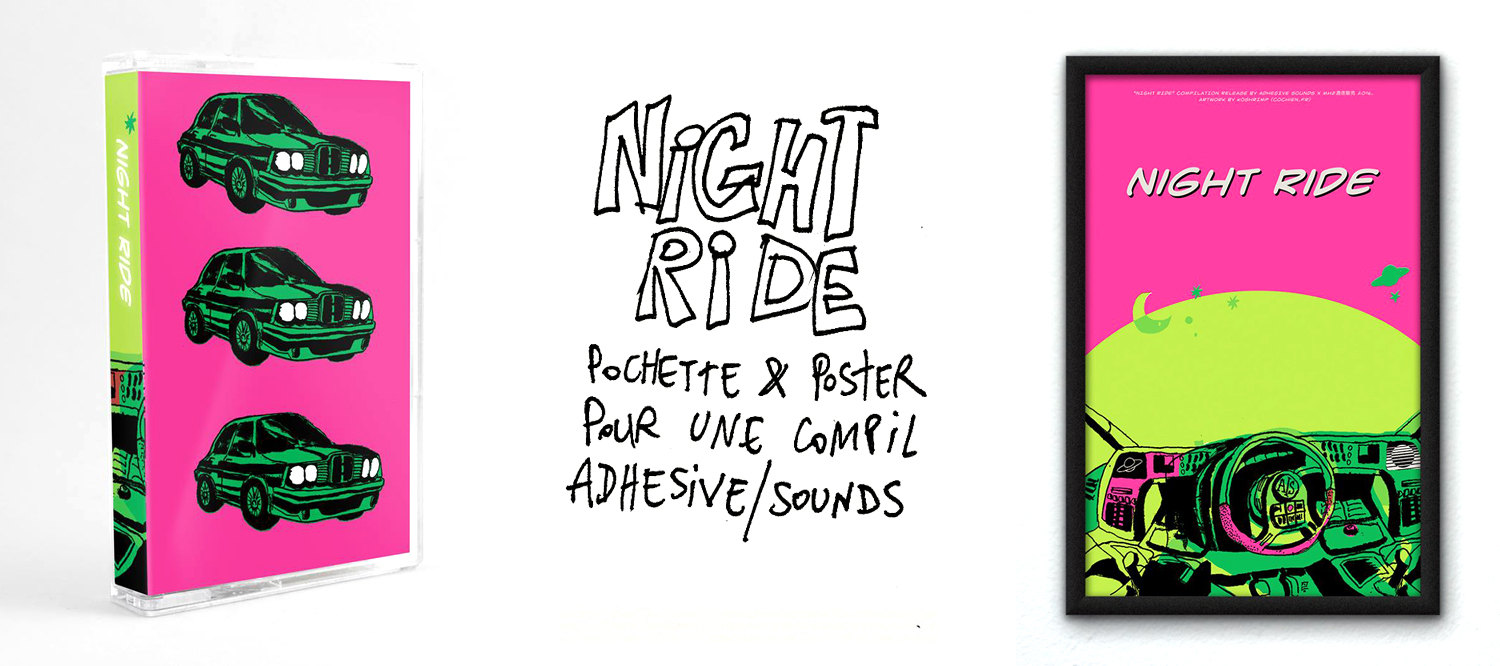 NIGHT RIDE
NiGHT
RiDE
POCHETTE & POSTER
POUR UNE COMPiL
ADHESiVE/SOUNDS
"NIGHT RIDE" COMPILATION RELEASE BY ADHESIVE SOUNDS X
ARTWORK BY KOSHRIMP (COCHIEN.FR)
NIGHT RIDE
A/S